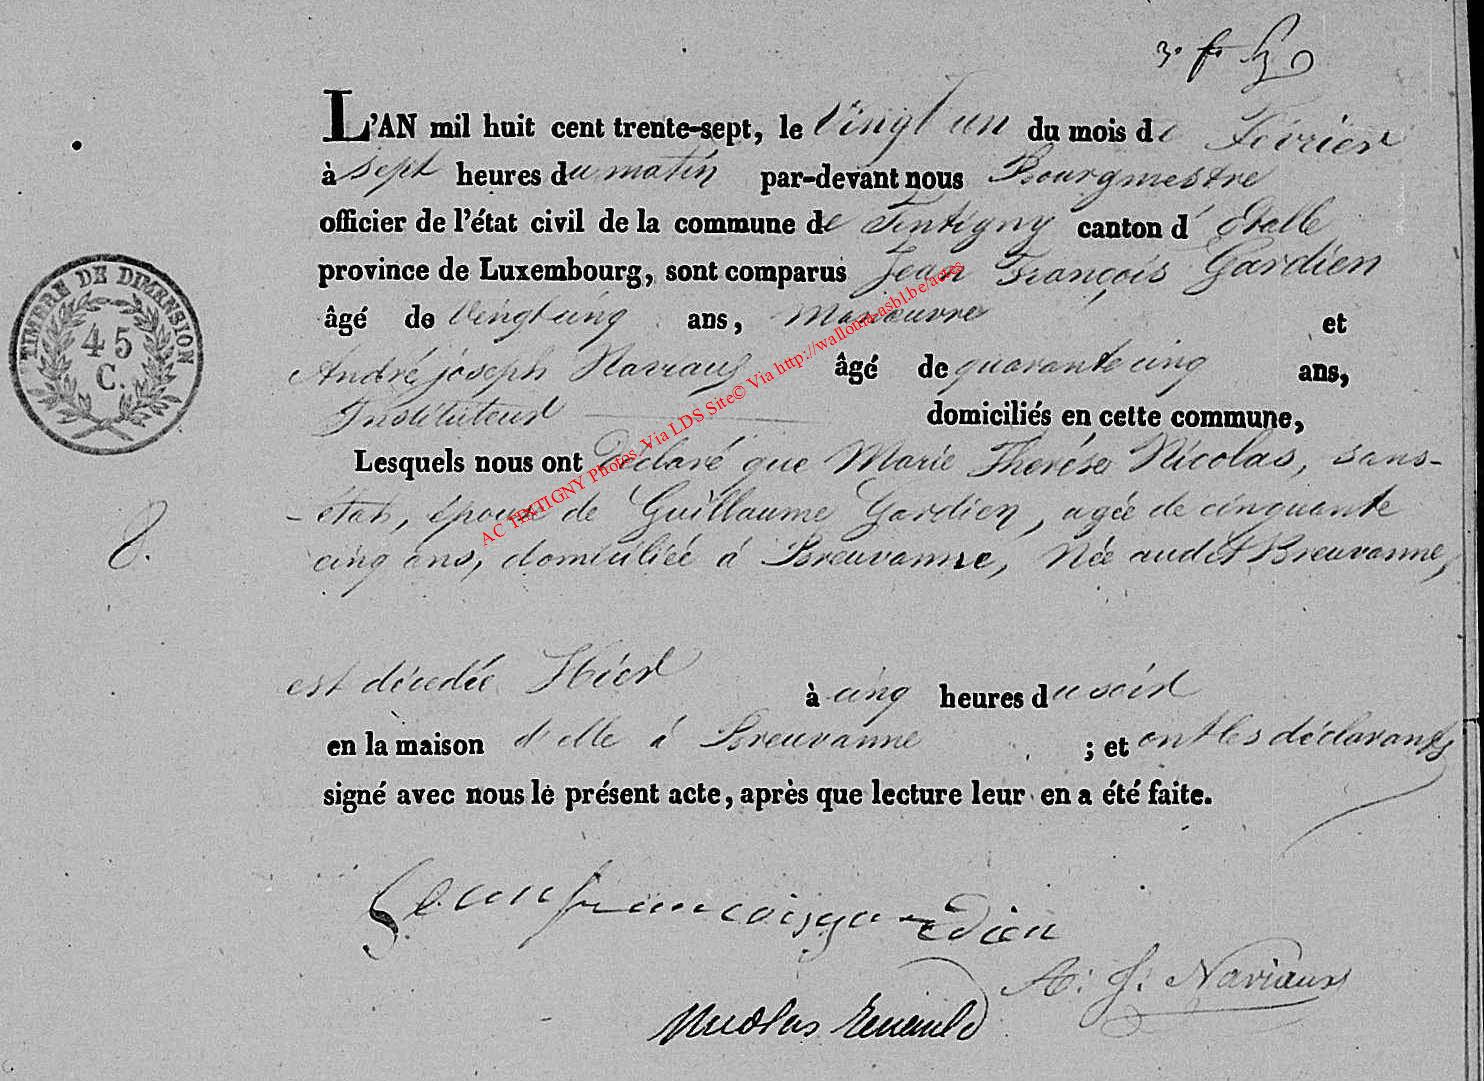 L'AN mil huit cent trente-sept, le vingt un du mois de Février
à sept heures du matin par-devant nous Bourgmestre
officier de l'état civil de la commune de Tintigny canton d' Etalle
province de Luxembourg, sont comparus Jean François Gardien
âgé de vingt cinq ans, Manoeuvre et
André joseph Naviaux âgé de quarante cinq ans,
Instituteur domiciliés en cette commune,
Lesquels nous ont Déclaré que Marie Thérése Nicolas, sans-
-état, épouse de Guillaume Gardien, agée de cinquante
cinq ans, domiciliée á Breuvanne, Née audit Breuvanne,
8.
est décedée Hier à cinq heures du soir
en la maison d'elle á Breuvanne ; et ont les déclarants
signé avec nous le présent acte, après que lecture leur en a été faite.
Jean francois gardien
A: J: Naviaux
Nicolas
TIMBRE DE DIMENSION
45
C.
AC TINTIGNY Photos Via LDS Site© Via http://wallonia-asbl.be/actes